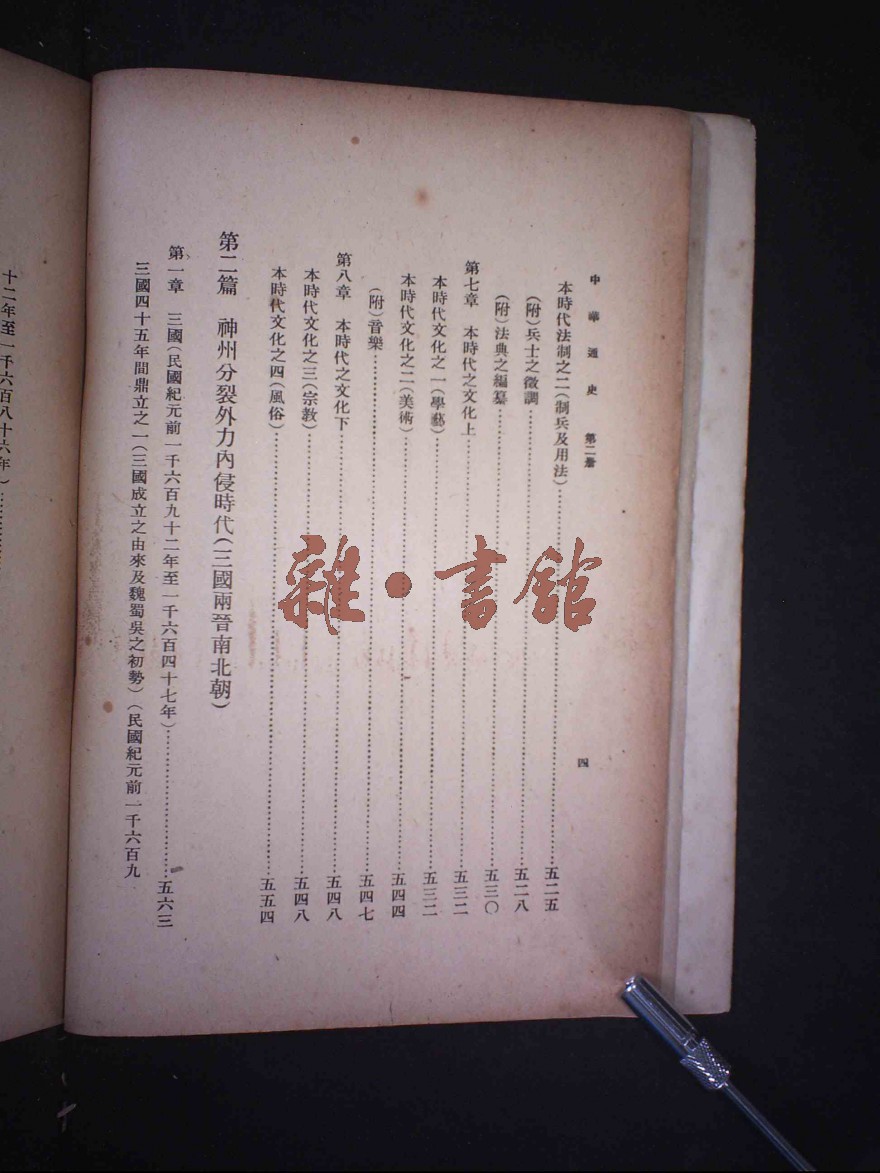 中華通史 第二册 四
本時代法制之二(制兵及用法)……五二五
(附)兵士之徵調……五二八
(附)法典之編纂……五三〇
第七章 本時代之文化上……五三二
本時代文化之一(學藝)……五三二
本時代文化之二(美術)……五四四
(附)音樂……五四七
第八章 本時代之文化下……五四八
本時代文化之三(宗教)……五四八
本時代文化之四(風俗)……五五四
第二篇 神州分裂外力內侵時代(三國兩晉南北朝)
第一章 三國(民國紀元前一千六百九十二年至一千六百四十七年)……五六三
三國四十五年間鼎立之一(三國成立之由來及魏蜀吳之初勢)(民國紀元前一千六百九
十二年至一千六百八十六年)……
雜·書館